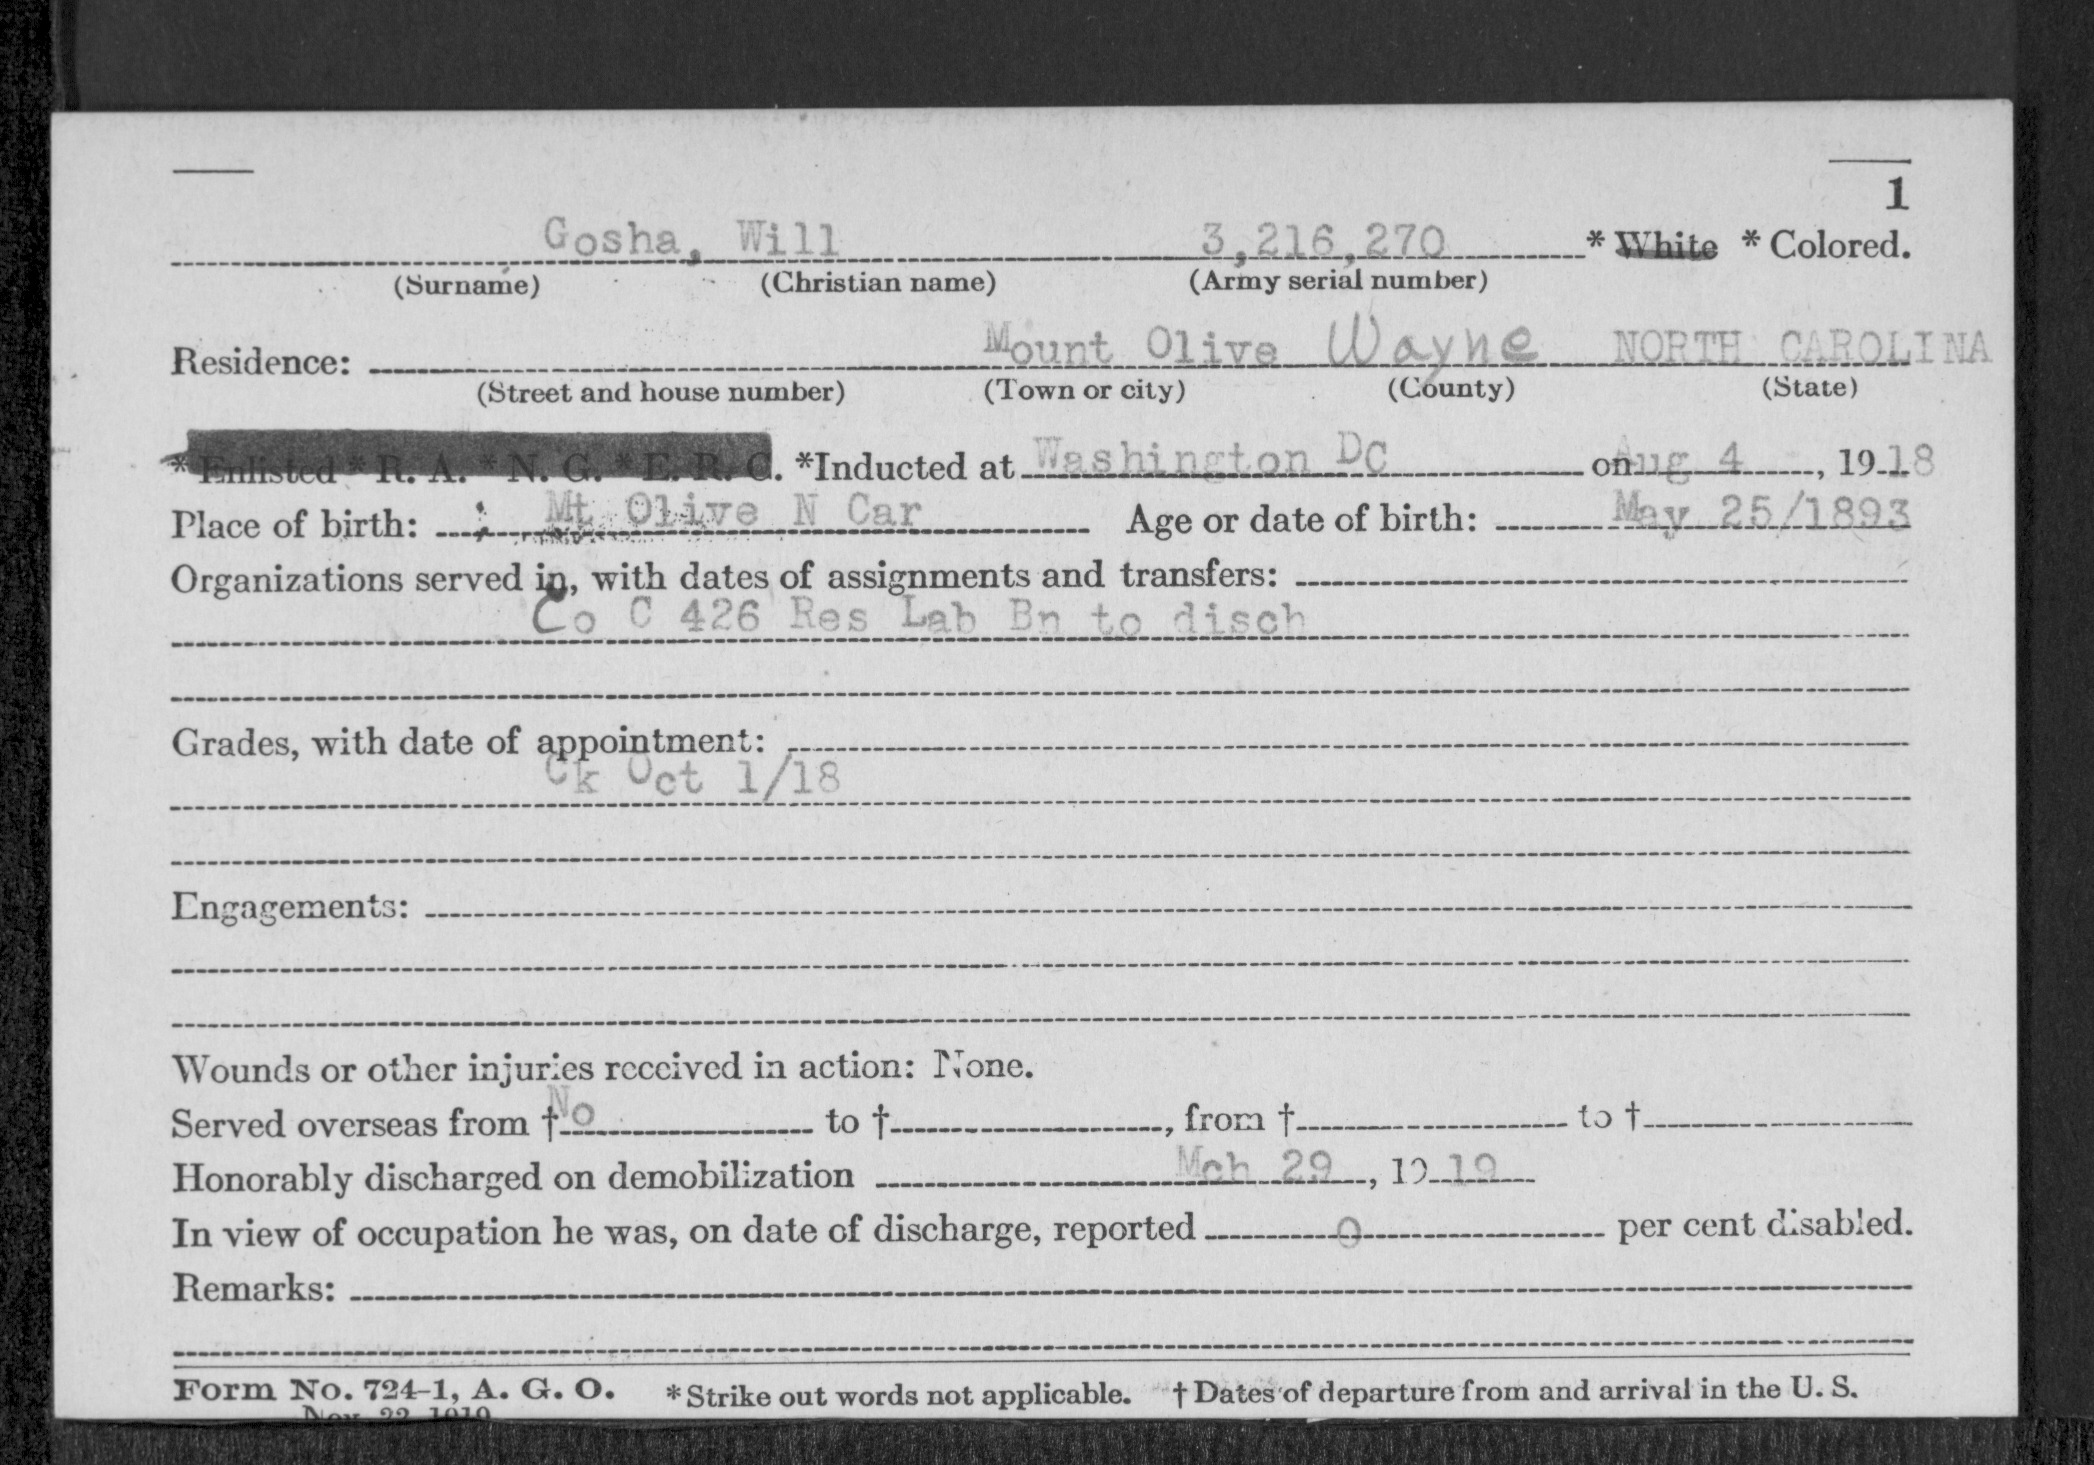 1
Gosha, Will 3,216,270 * White * Colored.
(Surname) (Christian name) (Army serial number)
Residence: Mount Olive Wayne NORTH CAROLINA
(Street and house number) (Town or city) (County) (State)
* Enlisted * R. A. * N. G. * E. R. C. *Inducted at Washington DC on Aug 4, 1918
Place of birth: Mt Olive N Car Age or date of birth: May 25/1893
Organizations served in, with dates of assignments and transfers:
Co C 426 Res Lab Bn to disch
Grades, with date of appointment:
Ck Oct 1/18
Engagements:
Wounds or other injuries received in action: None.
Served overseas from † No to †, from † to †
Honorably discharged on demobilization Mch 29, 1919
In view of occupation he was, on date of discharge, reported 0 per cent disabled.
Remarks:
Form No. 724-1, A. G. O. * Strike out words not applicable. † Dates of departure from and arrival in the U. S.
Nov. 22 1919